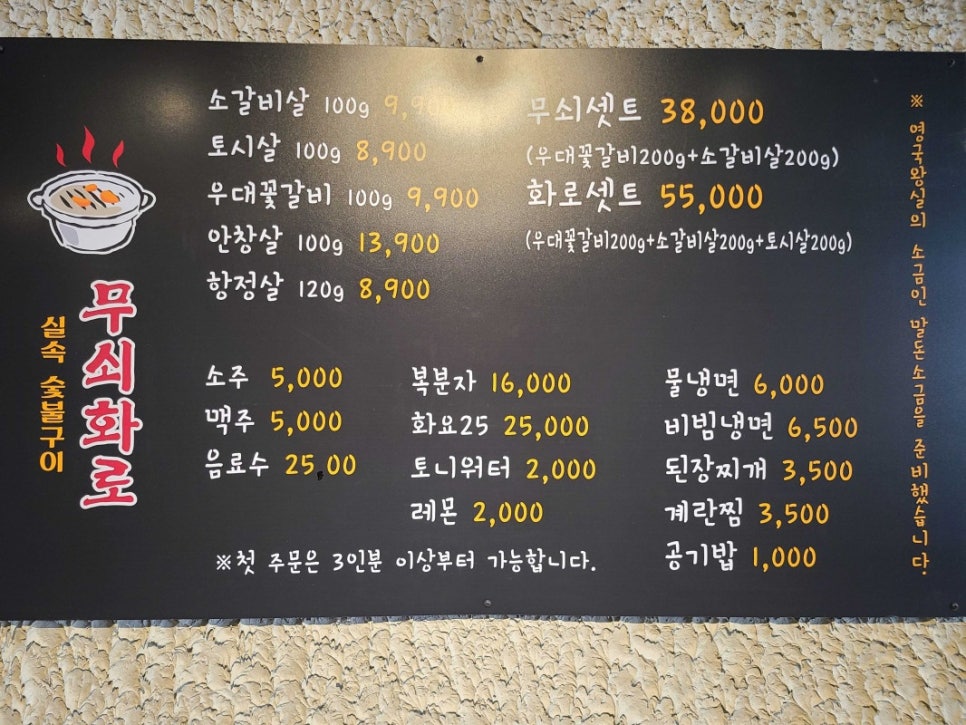 실속 숯불구이
무쇠화로
소갈비살 100g 9,900
토시살 100g 8,900
우대꽃갈비 100g 9,900
안창살 100g 13,900
항정살 120g 8,900
무쇠셋트 38,000
(우대꽃갈비200g+소갈비살200g)
화로셋트 55,000
(우대꽃갈비200g+소갈비살200g+토시살200g)
소주 5,000
맥주 5,000
음료수 25,00
복분자 16,000
화요25 25,000
토니워터 2,000
레몬 2,000
물냉면 6,000
비빔냉면 6,500
된장찌개 3,500
계란찜 3,500
공기밥 1,000
※첫 주문은 3인분 이상부터 가능합니다.
※ 영국왕실의 소금인 말돈소금을 준비했습니다.